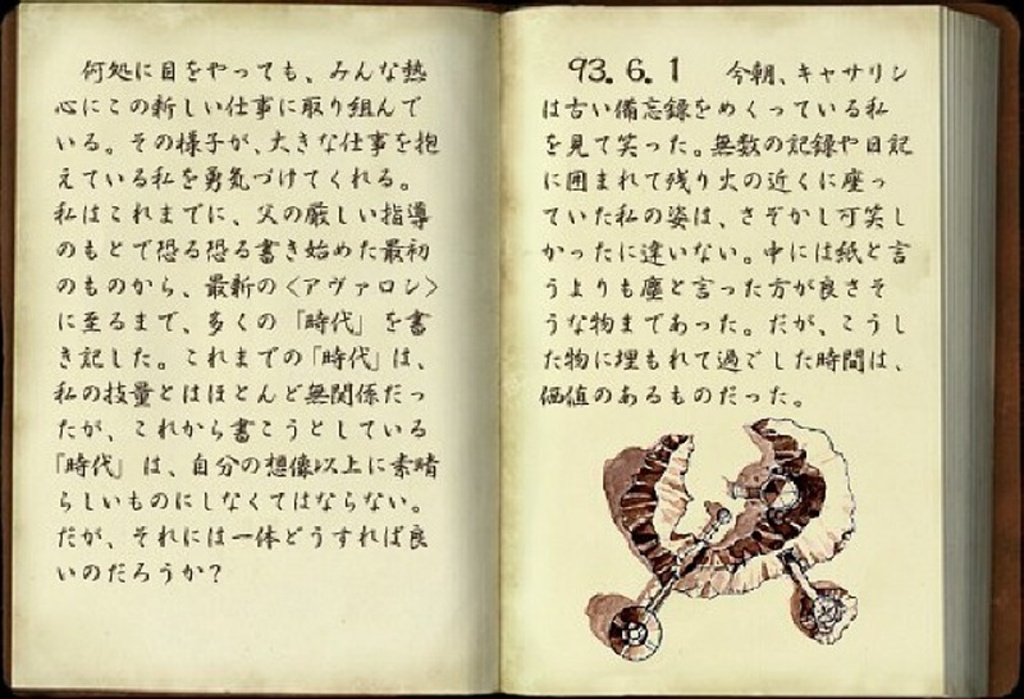 何処に目をやっても、みんな熱
心にこの新しい仕事に取り組んで
いる。その様子が、大きな仕事を抱
えている私を勇気づけてくれる。
私はこれまでに、父の厳しい指導
のもとで恐る恐る書き始めた最初
のものから、最新の〈アヴァロン〉
に至るまで、多くの「時代」を書
き記した。これまでの「時代」は、
私の技量とはほとんど無関係だっ
たが、これから書こうとしている
「時代」は、自分の想像以上に素晴
らしいものにしなくてはならない。
だが、それには一体どうすれば良
いのだろうか?
93.6.1 今朝、キャサリン
は古い備忘録をめくっている私
を見て笑った。無数の記録や日記
に囲まれて残り火の近くに座っ
ていた私の姿は、さぞかし可笑し
かったに違いない。中には紙と言
うよりも塵と言った方が良さそ
うな物まであった。だが、こうし
た物に埋もれて過ごした時間は、
価値のあるものだった。